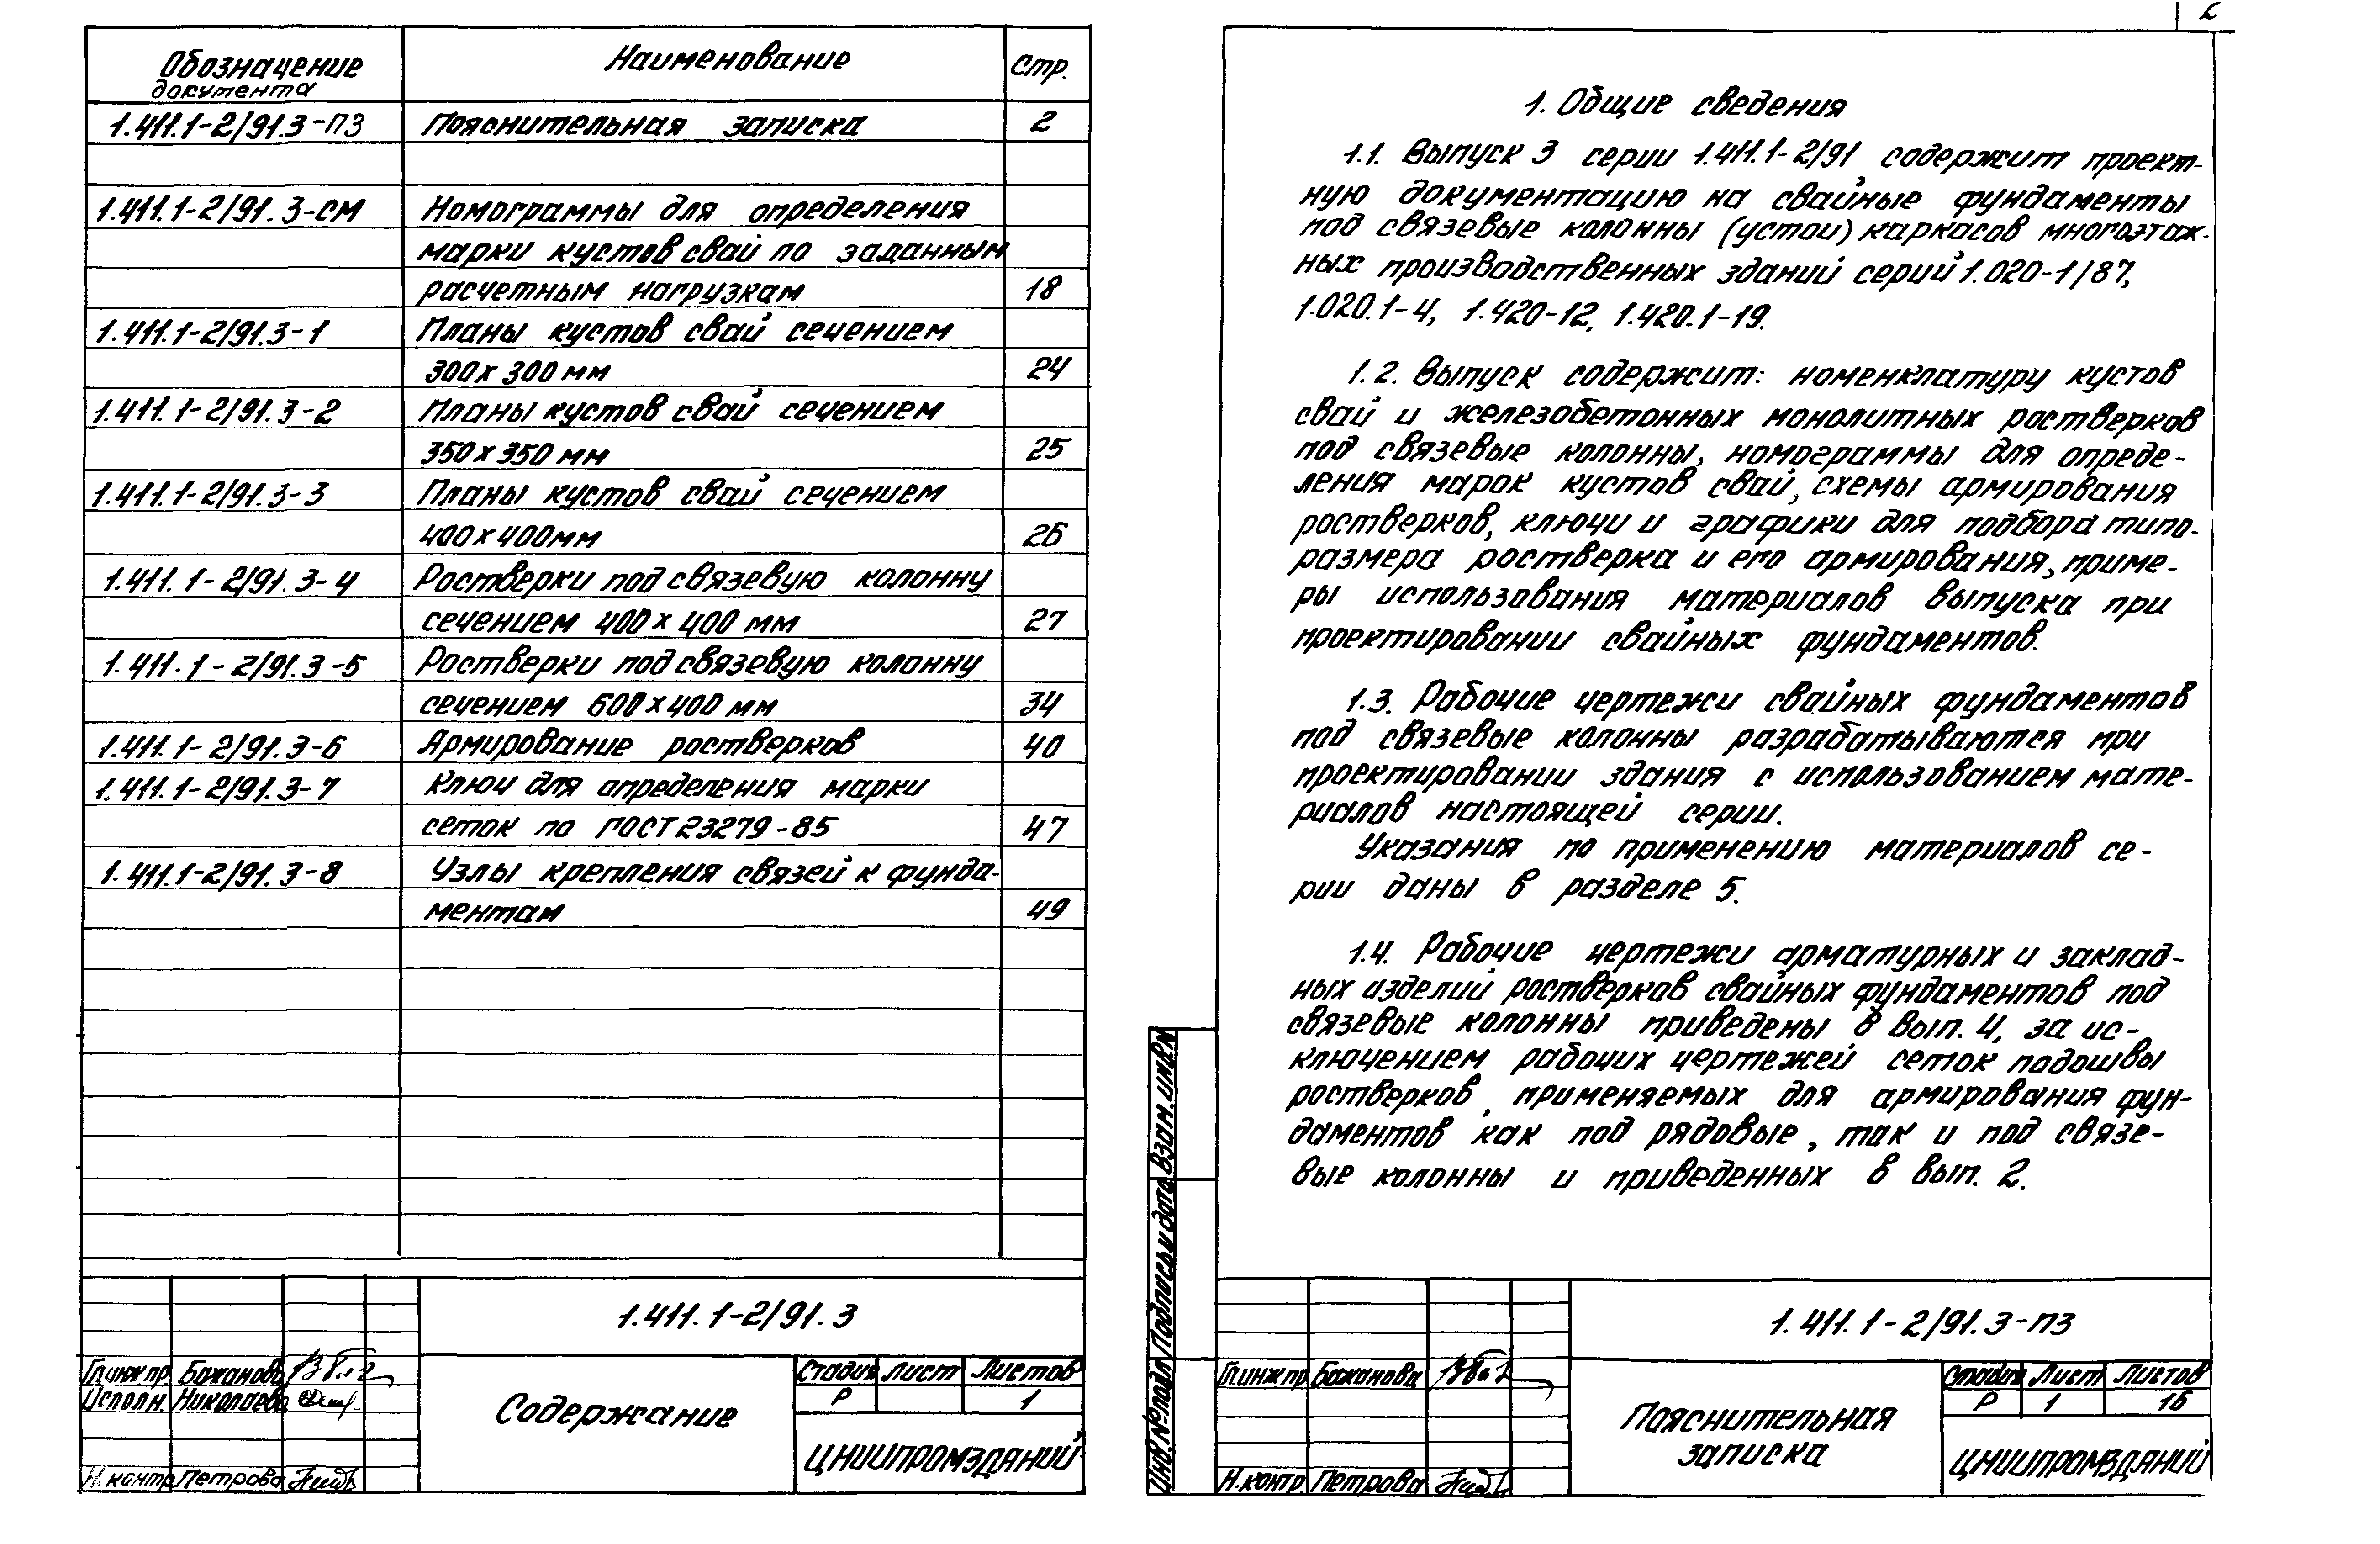 Обозначение документа Наименование Стр.
1.411.1-2/91.3-ПЗ Пояснительная записка 2
1.411.1-2/91.3-СМ Номограммы для определения
марки кустов свай по заданным
расчетным нагрузкам 18
1.411.1-2/91.3-1 Планы кустов свай сечением
300х300 мм 24
1.411.1-2/91.3-2 Планы кустов свай сечением
350х350 мм 25
1.411.1-2/91.3-3 Планы кустов свай сечением
400х400мм 26
1.411.1-2/91.3-4 Ростверки под связевую колонну
сечением 400х400 мм 27
1.411.1-2/91.3-5 Ростверки под связевую колонну
сечением 600х400 мм 34
1.411.1-2/91.3-6 Армирование ростверков 40
1.411.1-2/91.3-7 Ключ для определения марки
сеток по ГОСТ 23279-85 47
1.411.1-2/91.3-8 Узлы крепления связей к фунда-
ментам 49
1.411.1-2/91.3
Гл.инж.пр. Бажанова
Исполн. Николаева
Н.контр. Петрова
Содержание
Стадия Лист Листов
Р 1
ЦНИИПРОМЗДАНИЙ
2
1. Общие сведения
1.1. Выпуск 3 серии 1.411.1-2/91 содержит проект-
ную документацию на свайные фундаменты
под связевые колонны (устои) каркасов многоэтаж-
ных производственных зданий серий 1.020-1/87,
1.020.1-4, 1.420-12, 1.420.1-19.
1.2. Выпуск содержит: номенклатуру кустов
свай и железобетонных монолитных ростверков
под связевые колонны, номограммы для опреде-
ления марок кустов свай, схемы армирования
ростверков, ключи и графики для подбора типо-
размера ростверка и его армирования, приме-
ры использования материалов выпуска при
проектировании свайных фундаментов.
1.3. Рабочие чертежи свайных фундаментов
под связевые колонны разрабатываются при
проектировании здания с использованием мате-
риалов настоящей серии.
Указания по применению материалов се-
рии даны в разделе 5.
1.4. Рабочие чертежи арматурных и заклад-
ных изделий ростверков свайных фундаментов под
связевые колонны приведены в вып. 4, за ис-
ключением рабочих чертежей сеток подошвы
ростверков, применяемых для армирования фун-
даментов как под рядовые, так и под связе-
вые колонны и приведенных в вып. 2.
Инв.№подл. Подпись и дата Взам.инв.№
1.411.1-2/91.3-ПЗ
Гл.инж.пр Бажанова
Н.контр. Петрова
Пояснительная
записка
Стадия Лист Листов
Р 1 16
ЦНИИПРОМЗДАНИЙ